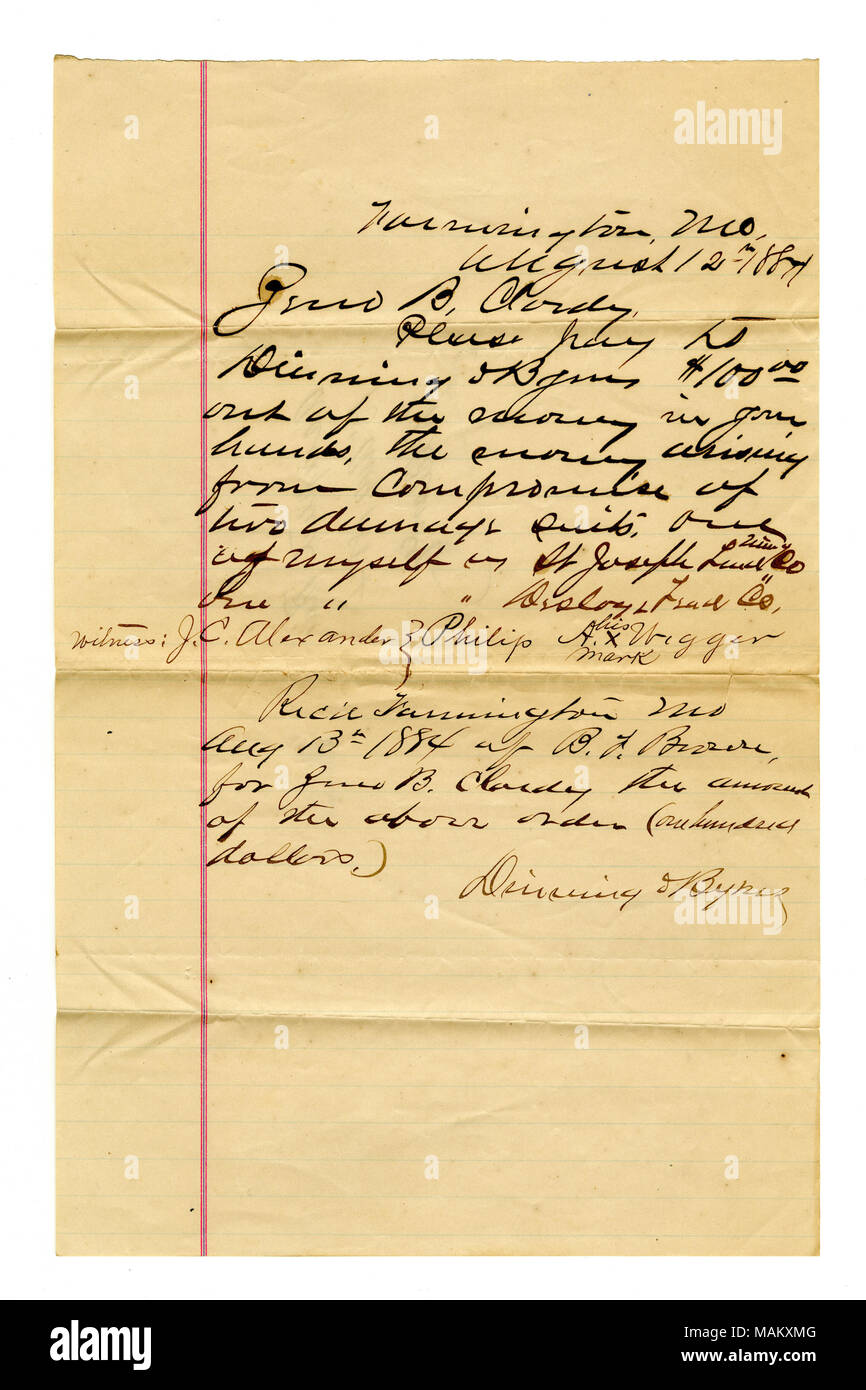 Farmington, Mo,
August 12th 1884
Jno B. Clardy,
Please pay to
Dinning & Byrns $100.00
out of the money in your
hands, the money arising
from Compromise of
two damage suits, one
of myself vs St Joseph Lead Co
one " " Desloge Lead Co,
Witness: J. C. Alexander } Philip A. his x mark Wigger
Recd Farmington Mo
Aug 13th 1884 of B. F.
for Jno B. Clardy the amount
of the above order (one hundred
dollars.)
Dinning & Byrns
a alamy
alamy
Image ID: MAKXMG
www.alamy.com